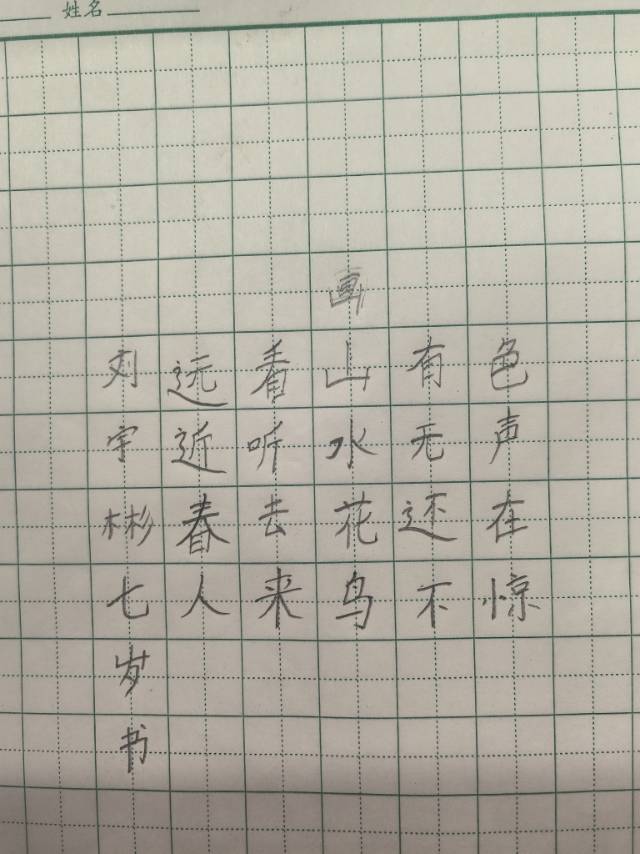 姓名
画
远看山有色
近听水无声
春去花还在
人来鸟不惊
刘宇彬七岁书